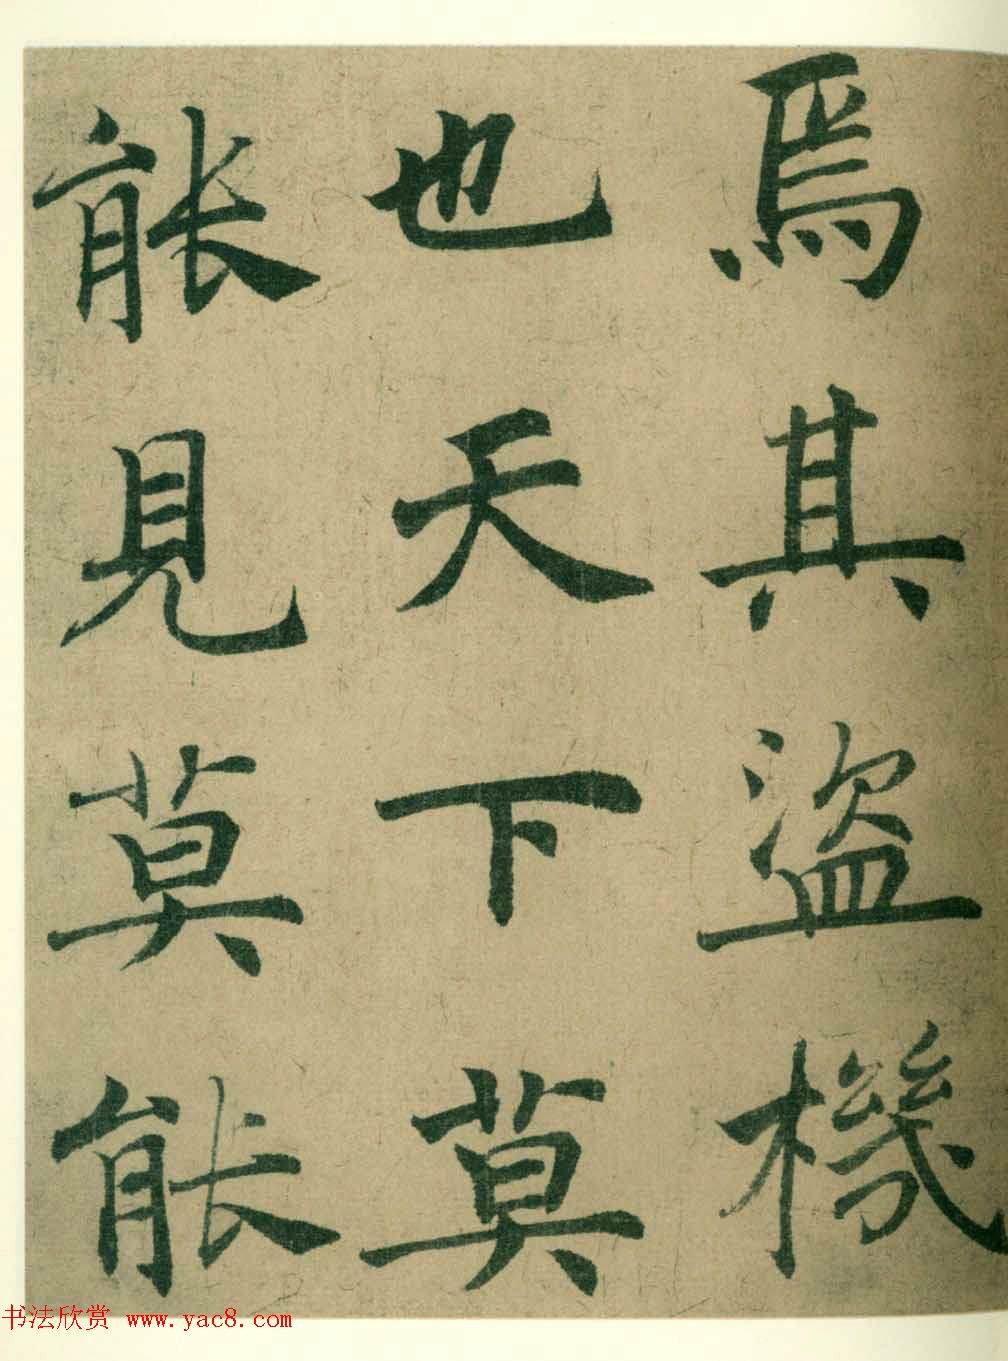 焉其盗機
也天下莫
能見莫能
书法欣赏 www.yac8.com